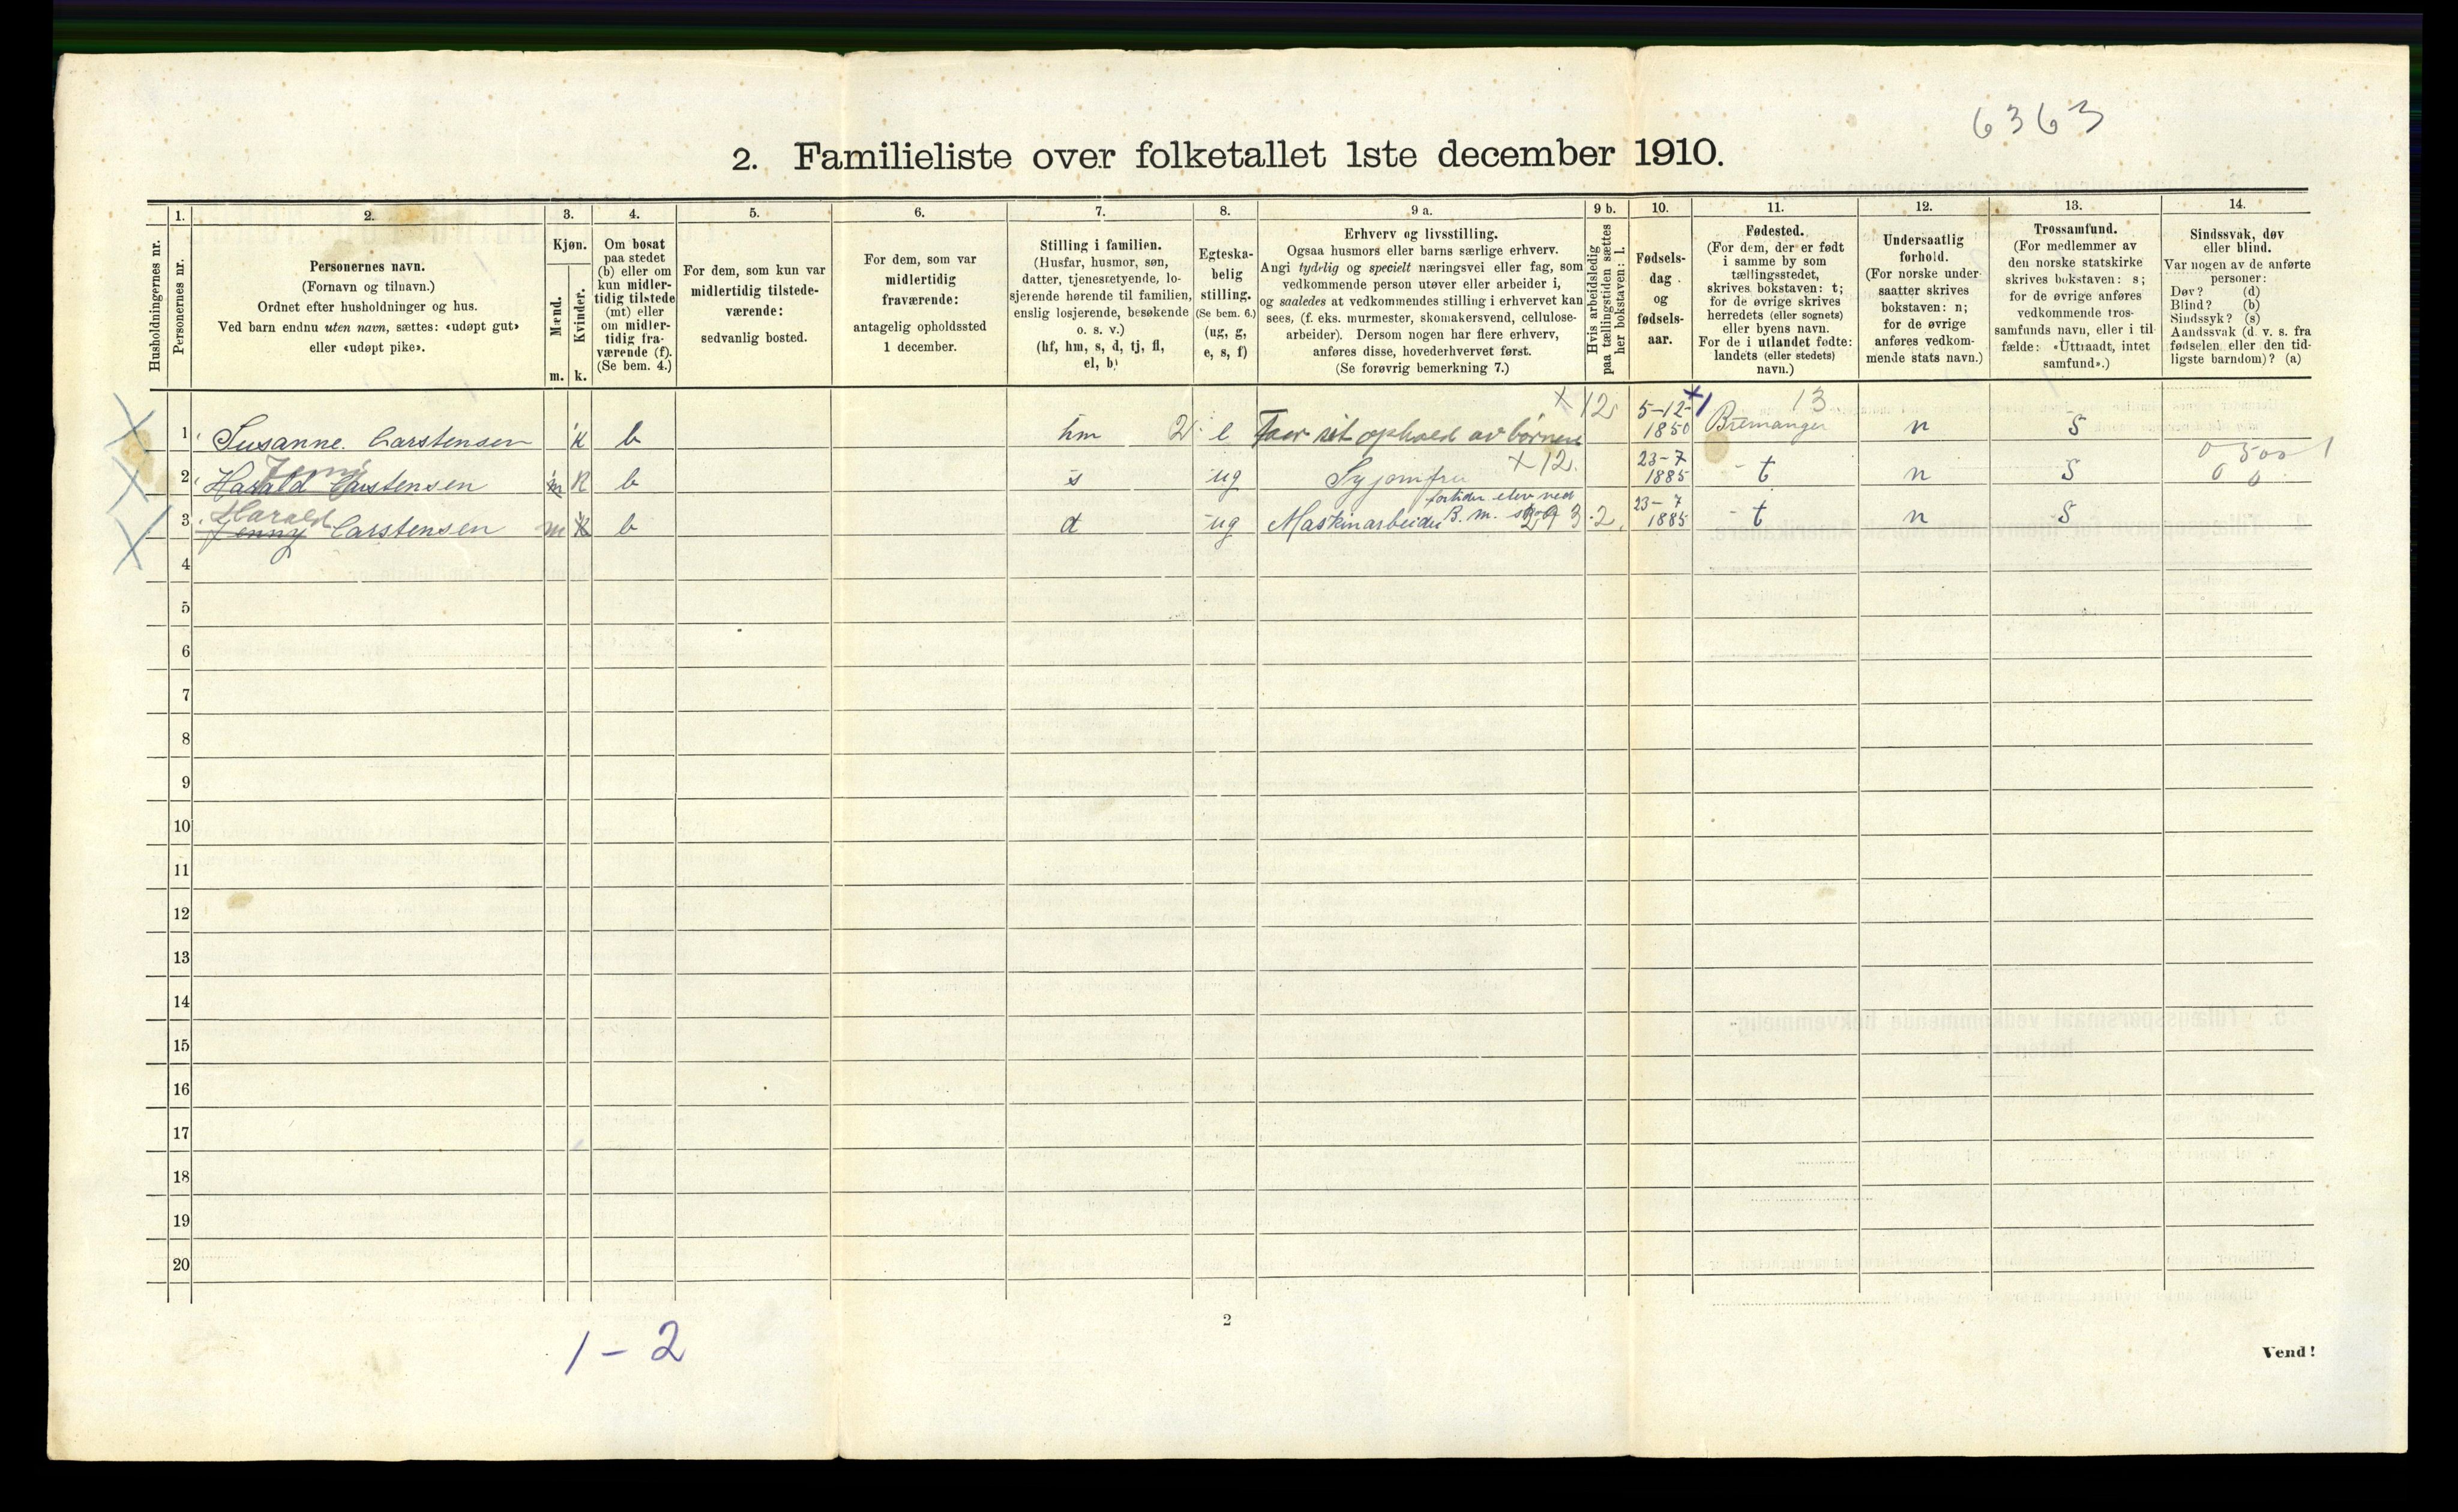 6363
2. Familieliste over folketallet 1ste december 1910.
Husholdningernes nr.
1.
Personernes nr.
2.
Personernes navn.
(Fornavn og tilnavn.)
Ordnet efter husholdninger og hus.
Ved barn endnu uten navn, sættes: «udøpt gut»
eller «udøpt pike».
3.
Kjøn.
Mænd.
Kvinder.
m. k.
4.
Om bosat
paa stedet
(b) eller om
kun midler-
tidig tilstede
(mt) eller
om midler-
tidig fra-
værende (f).
(Se bem. 4.)
5.
For dem, som kun var
midlertidig tilstede-
værende:
sedvanlig bosted.
6.
For dem, som var
midlertidig
fraværende:
antagelig opholdssted
1 december.
7.
Stilling i familien.
(Husfar, husmor, søn,
datter, tjenestetyende, lo-
sjerende hørende til familien,
enslig losjerende, besøkende
o. s. v.)
(hf, hm, s, d, tj, fl,
el, b)
8.
Egteska-
belig
stilling.
(Se bem. 6.)
(ug, g,
e, s, f)
9 a.
Erhverv og livsstilling.
Ogsaa husmors eller barns særlige erhverv.
Angi tydelig og specielt næringsvei eller fag, som
vedkommende person utøver eller arbeider i,
og saaledes at vedkommendes stilling i erhvervet kan
sees, (f. eks. murmester, skomakersvend, cellulose-
arbeider). Dersom nogen har flere erhverv,
anføres disse, hovederhvervet først.
(Se forøvrig bemerkning 7.)
9 b.
Hvis arbeidsledig
paa tællingstiden sættes
her bokstaven: l.
10.
Fødsels-
dag
og
fødsels-
aar.
11.
Fødested.
(For dem, der er født
i samme by som
tællingsstedet,
skrives bokstaven: t;
for de øvrige skrives
herredets (eller sognets)
eller byens navn.
For de i utlandet fødte:
landets (eller stedets)
navn.)
12.
Undersaatlig
forhold.
(For norske under-
saatter skrives
bokstaven: n;
for de øvrige
anføres vedkom-
mende stats navn.)
13.
Trossamfund.
(For medlemmer av
den norske statskirke
skrives bokstaven: s;
for de øvrige anføres
vedkommende tros-
samfunds navn, eller i til-
fælde: «Uttraadt, intet
samfund».)
14.
Sindssvak, døv
eller blind.
Var nogen av de anførte
personer:
Døv? (d)
Blind? (b)
Sindssyk? (s)
Aandssvak (d. v. s. fra
fødselen eller den tid-
ligste barndom)? (a)
x 12 5-12- 13
1 Susanne. Carstensen k b hm 2 e Faar sit ophold av børnene 1850 Bremanger n S
Jenny x 12. 23-7 0 500 1
2 Harald Carstensen m K b s ug Syjomfru 1885 t n S 0 0
Harald fortiden elev ved 23-7
3 Jenny Carstensen m k b d ug Maskinarbeider B. m. 3 2 1885 t n S
4
5
6
7
8
9
10
11
12
13
14
15
16
17
18
19
20
1-2
2
Vend!